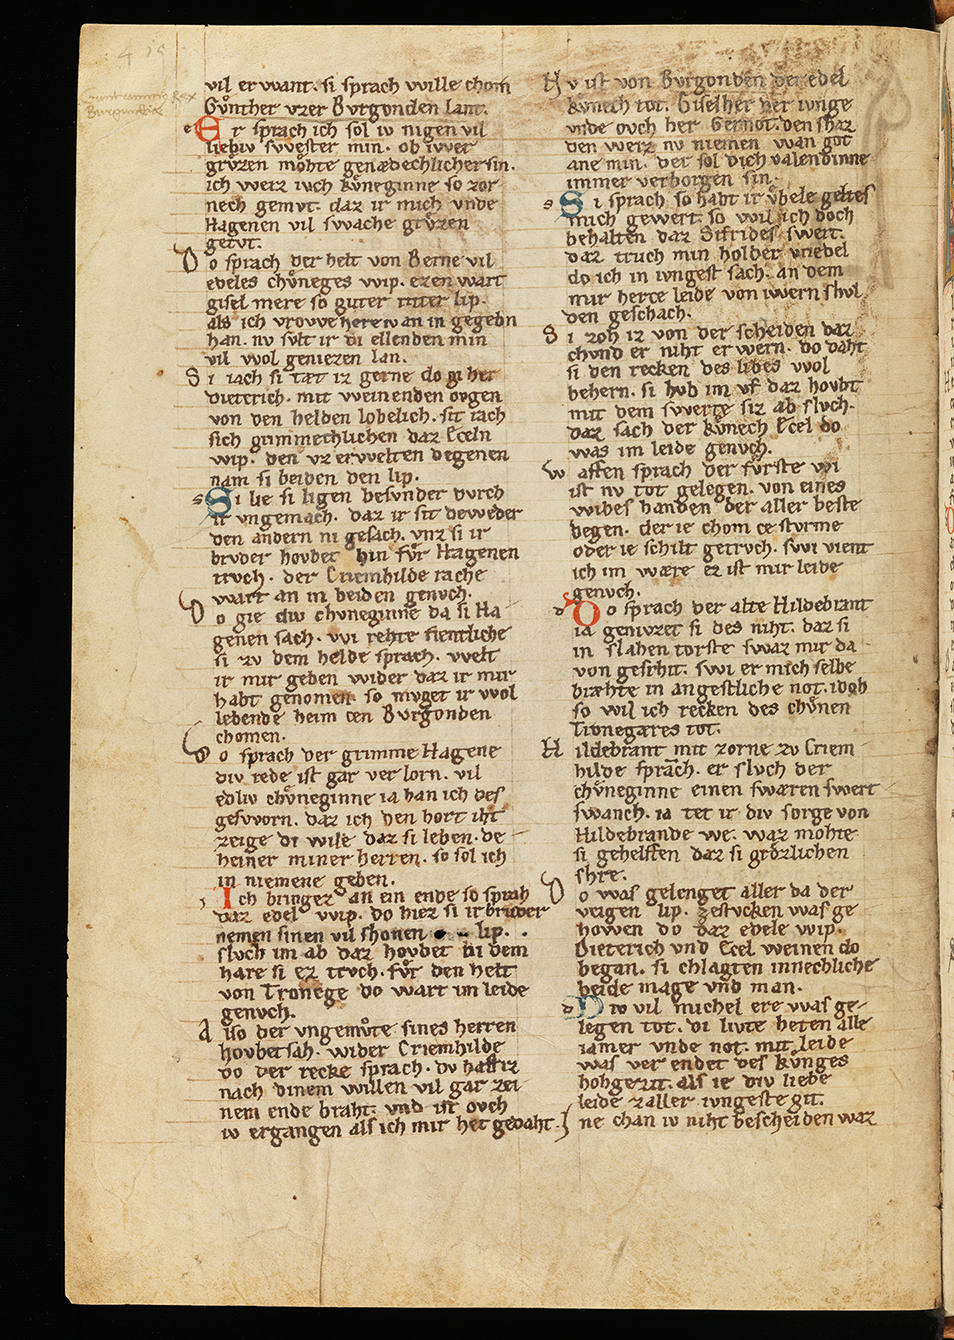 vil er want. si sprach wille chom
Gv̊nther vzer Bvrgonden lant.
Er sprach ich sol iv nigen vil
liebiv swester min. ob iwer
grv̊zen mohte genædechlicher sin.
ich weiz iuch kv̊neginne so zor
nech gemvt. daz ir mich vnde
Hagenen vil swache grv̊zen
getvt.
Do sprach der helt von Berne vil
edeles chv̊neges wip. ezen wart
gisel mere so guter ritter lip.
als ich vrowe here iv an in gegebn
han. nv svlt ir di ellenden min
vil wol geniezen lan.
Si iach si tæt iz gerne do gi her
Dieterich. mit weinenden ovgen
von den helden lobelich. sit rach
sich grimmechlichen daz Eceln
wip. den vz erwelten degenen
nam si beiden den lip.
Si lie si ligen besvnder dvrch
ir vngemach. daz ir sit deweder
den andern ni gesach. vnz si ir
brvder hovbet hin fv̊r Hagenen
trvch. der Criemhilde rache
wart an in beiden genvch.
Do gie div chvneginne da si Ha
genen sach. wi rehte fientliche
si zv dem helde sprach. welt
ir mir geben wider daz ir mir
habt genomen. so mvget ir wol
lebende heim cen Bvrgonden
chomen.
Do sprach der grimme Hagene
div rede ist gar ver lorn. vil
edliv chv̊neginne ia han ich des
gesworn. daz ich den hort iht
zeige di wile daz si leben. de
heiner miner herren. so sol ich
in niemene geben.
Ich bringez an ein ende so sprah
daz edel wip. do hiez si ir brvder
nemen sinen vil shonen lip.
slvch im ab daz hovbet bi dem
hare si ez trvch. fv̊r den helt
von Tronege do wart im leide
genvch.
Also der vngemv̊te sines herren
hovbet sah. wider Criemhilde
do der recke sprach. dv hast iz
nach dinem willen vil gar zei
nem ende braht. vnd ist ovch
iv ergangen als ich mir het gedaht.
Nv ist von Bvrgonden der edel
kv̊nech tot. Giselher der ivnge
vnde ovch her Gernot. den shaz
den weiz nv niemen wan got
ane min. der sol dich valendinne
immer verborgen sin.
Si sprach so habt ir v̊bele geltes
mich gewert. so wil ich doch
behalten daz Sifrides swert.
daz truch min holder vriedel
do ich in ivngest sach. an dem
mir herce leide von iwern shvl
den geschach.
Si zoh iz von der scheiden daz
chvnd er niht er wern. do daht
si den recken des libes wol
behern. si hvb im vf daz hovbt
mit dem swerte siz ab slvch.
daz sach der kv̊nech Ecel do
was im leide genvch.
Waffen sprach der fv̊rste wi
ist nv tot gelegen. von eines
wibes handen der aller beste
degen. der ie chom ce stvrme
oder ie schilt getrvch. swi vient
ich im wære ez ist mir leide
genvch.
Do sprach der alte Hildebrant
ia genivzet si des niht. daz si
in slahen torste swaz mir da
von geschit. swi er mich selbe
bræhte in angestliche not. idoh
so wil ich recken des chv̊nen
Tronegæres tot.
Hildebrant mit zorne zv Criem
hilde sprach. er slvch der
chv̊neginne einen swæren swert
swanch. ia tet ir div sorge von
Hildebrande we. waz mohte
si gehelffen daz si grozlichen
shre.
Do was gelenget aller da der
veigen lip. zestvcken was ge
howen do daz edele wip.
Dieterich vnd Ecel weinen do
began. si chlagten innechliche
beide mage vnd man.
Div vil michel ere was ge
legen tot. di livte heten alle
iamer vnde not. mit leide
was ver endet des kv̊nges
hohgezit. als ie div liebe
leide zaller ivngeste git.
Ine chan iv niht bescheiden waz